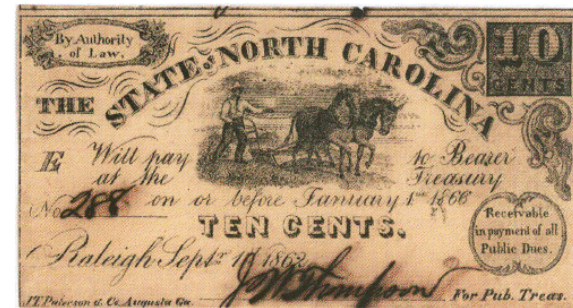 By Authority
of Law.
10
CENTS
THE STATE of NORTH CAROLINA
E Will pay to Bearer
at the Treasury
No 288 on or before January 1st 1866
TEN CENTS.
Receivable
in payment of all
Public Dues.
Raleigh Septr 1st 1862
J.T. Paterson & Co. Augusta Ga.
For Pub. Treas.